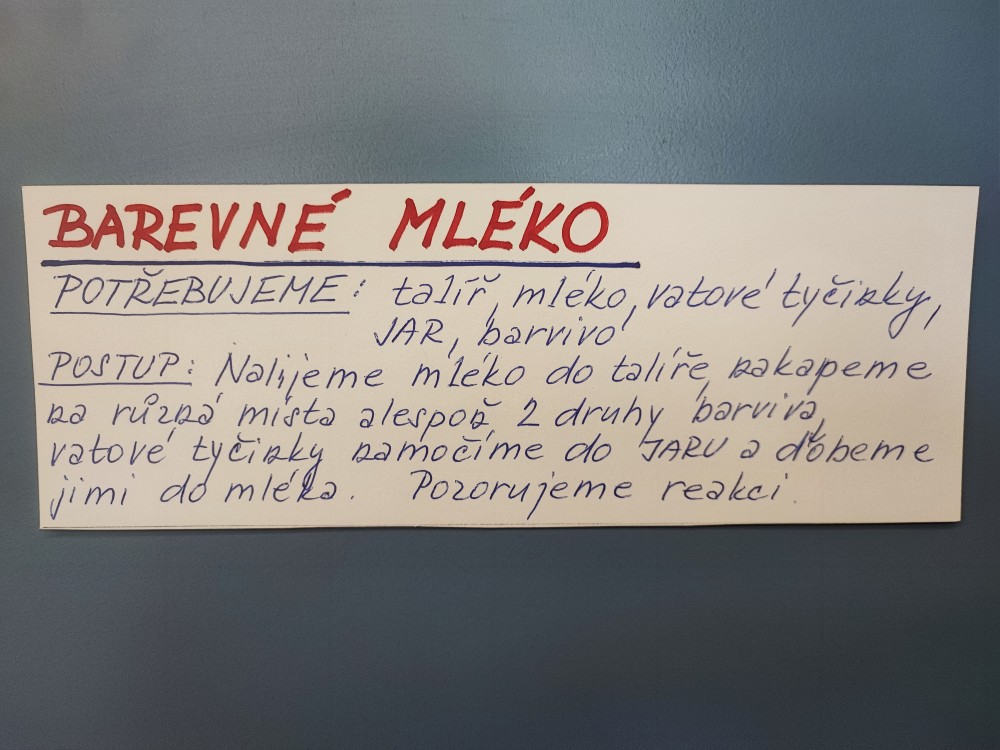 BAREVNÉ MLÉKO
POTŘEBUJEME: talíř, mléko, vatové tyčinky,
JAR, barvivo
POSTUP: Nalijeme mléko do talíře, nakapeme
na různá místa alespoň 2 druhy barviva,
vatové tyčinky namočíme do JARU a ďobeme
jimi do mléka. Pozorujeme reakci.